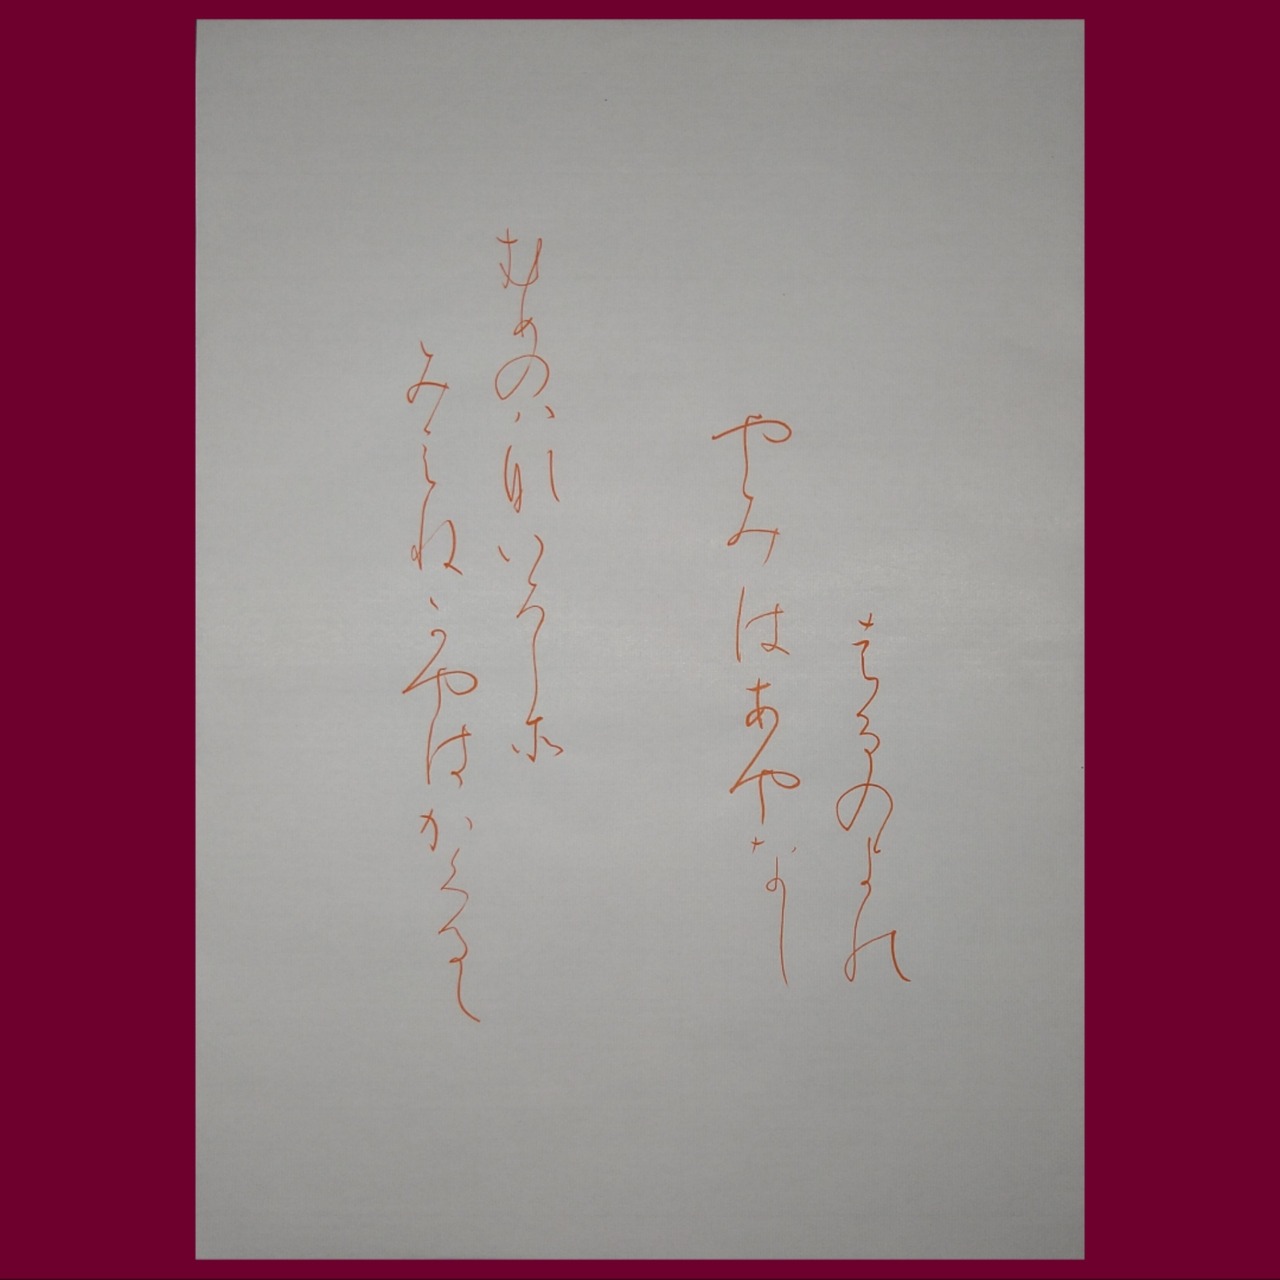 はるのよの
やみはあやなし
むめのは那いろこ尓
みえねかやはかくるゝ